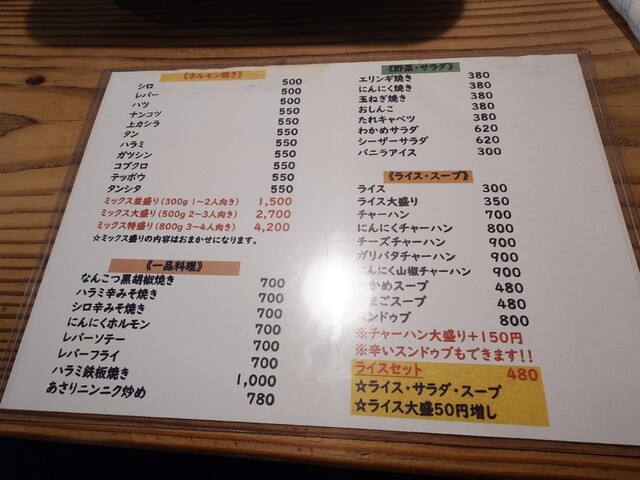 《ホルモン焼き》
シロ 500
レバー 500
ハツ 500
ナンコツ 550
上カシラ 550
タン 550
ハラミ 550
ガツシン 550
コブクロ 550
テッポウ 550
タンシタ 550
ミックス並盛り(300g 1〜2人向き) 1,500
ミックス大盛り(500g 2〜3人向き) 2,700
ミックス特盛り(800g 3〜4人向き) 4,200
☆ミックス盛りの内容はおまかせになります。
《一品料理》
なんこつ黒胡椒焼き 700
ハラミ辛みそ焼き 700
シロ辛みそ焼き 700
にんにくホルモン 700
レバーソテー 700
レバーフライ 700
ハラミ鉄板焼き 1,000
あさりニンニク炒め 780
《野菜・サラダ》
エリンギ焼き 380
にんにく焼き 380
玉ねぎ焼き 380
おしんこ 380
たれキャベツ 380
わかめサラダ 620
シーザーサラダ 620
バニラアイス 300
《ライス・スープ》
ライス 300
ライス大盛り 350
チャーハン 700
にんにくチャーハン 800
チーズチャーハン 900
ガリバタチャーハン 900
にんにく山椒チャーハン 900
かめスープ 480
まごスープ 480
スンドゥブ 800
※チャーハン大盛り+150円
※辛いスンドゥブもできます!!
ライスセット 480
☆ライス・サラダ・スープ
☆ライス大盛50円増し